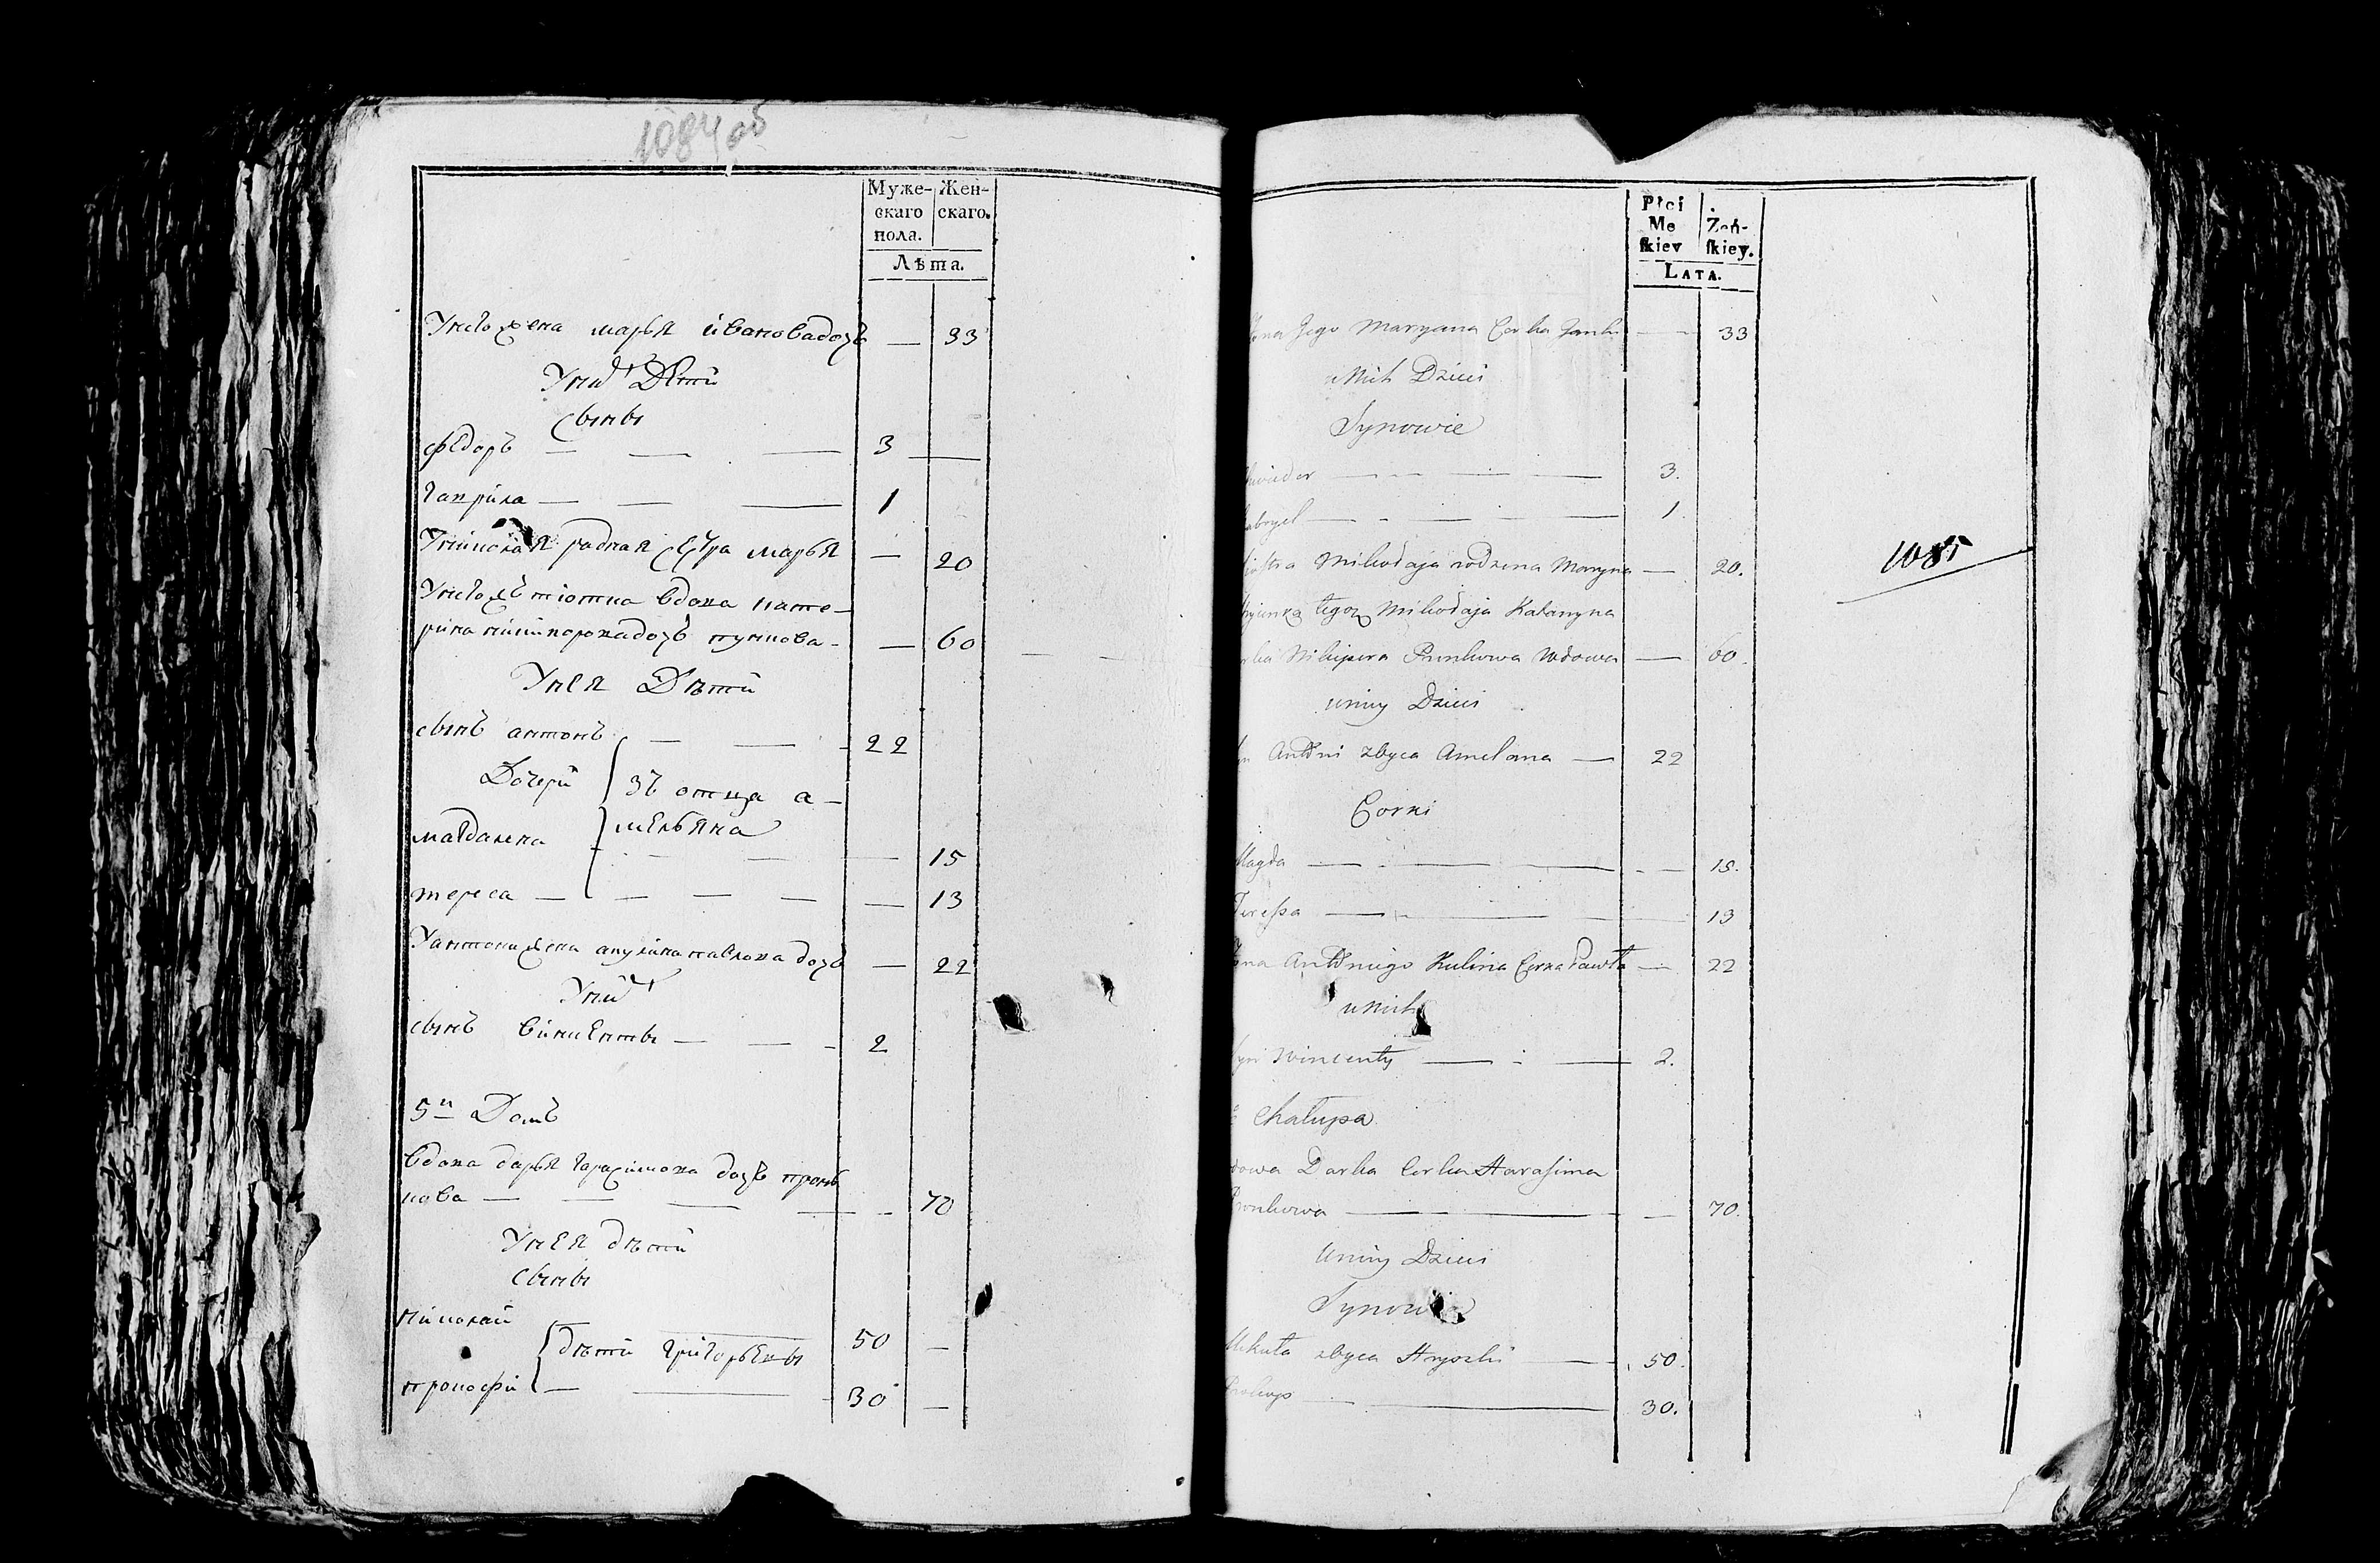 1084 об
Муже- Жен-
скаго скаго.
пола.
Лѣта.
Унего жена марья ивановадочь — 33
Унихъ Дѣти
Сыны
федоръ — — — 3 —
гаврила — — — 1
родная сестра марья — 20
Унегожъ тіотка вдова кате-
рина никифоровадочь — 60
Унея Дѣти
сынъ антонъ — — 22
Дочери зъ отца а-
магдалена мельяна
— — — 15
тереса — — — — — 13
Уантона жена акулина павлова дочь — 22
Унихъ
сынъ винценты — — - 2
5й Домъ
вдова дарья гарасимова дочь пронь
кова — — — — - 70
Унея дѣти
Сыны
николай
дѣти григорьевы 50 —
прокофи — — 30 —
Płci
Mę Żeń-
skiey skiey.
LATA.
żona Jego Maryana Corka Janki — 33
u Nich Dzieci
Synowie
Chwiedor — — — 3.
Gabryel — - — — 1.
Siostra Mikołaja rodzona Maryna — 20.
tegoż Mikołaja Katarzyna
Corka Nikipera Pronkowa Wdowa — 60.
u niey Dzieci
Syn Antoni zbyca Amelana — 22
Corki
Magda — - — — - — 15.
Teressa — — — 13
Żona Antoniego Kulina Corka Pawła — 22
u Nich
Syn Wincenty — — 2.
Chałupa
Wdowa Darka Corka Harasima
Pronkowa — — — 70.
U niey Dzieci
Synowie
Mikuła zbyca Hryszki — 50.
Prokop — — 30.
1085